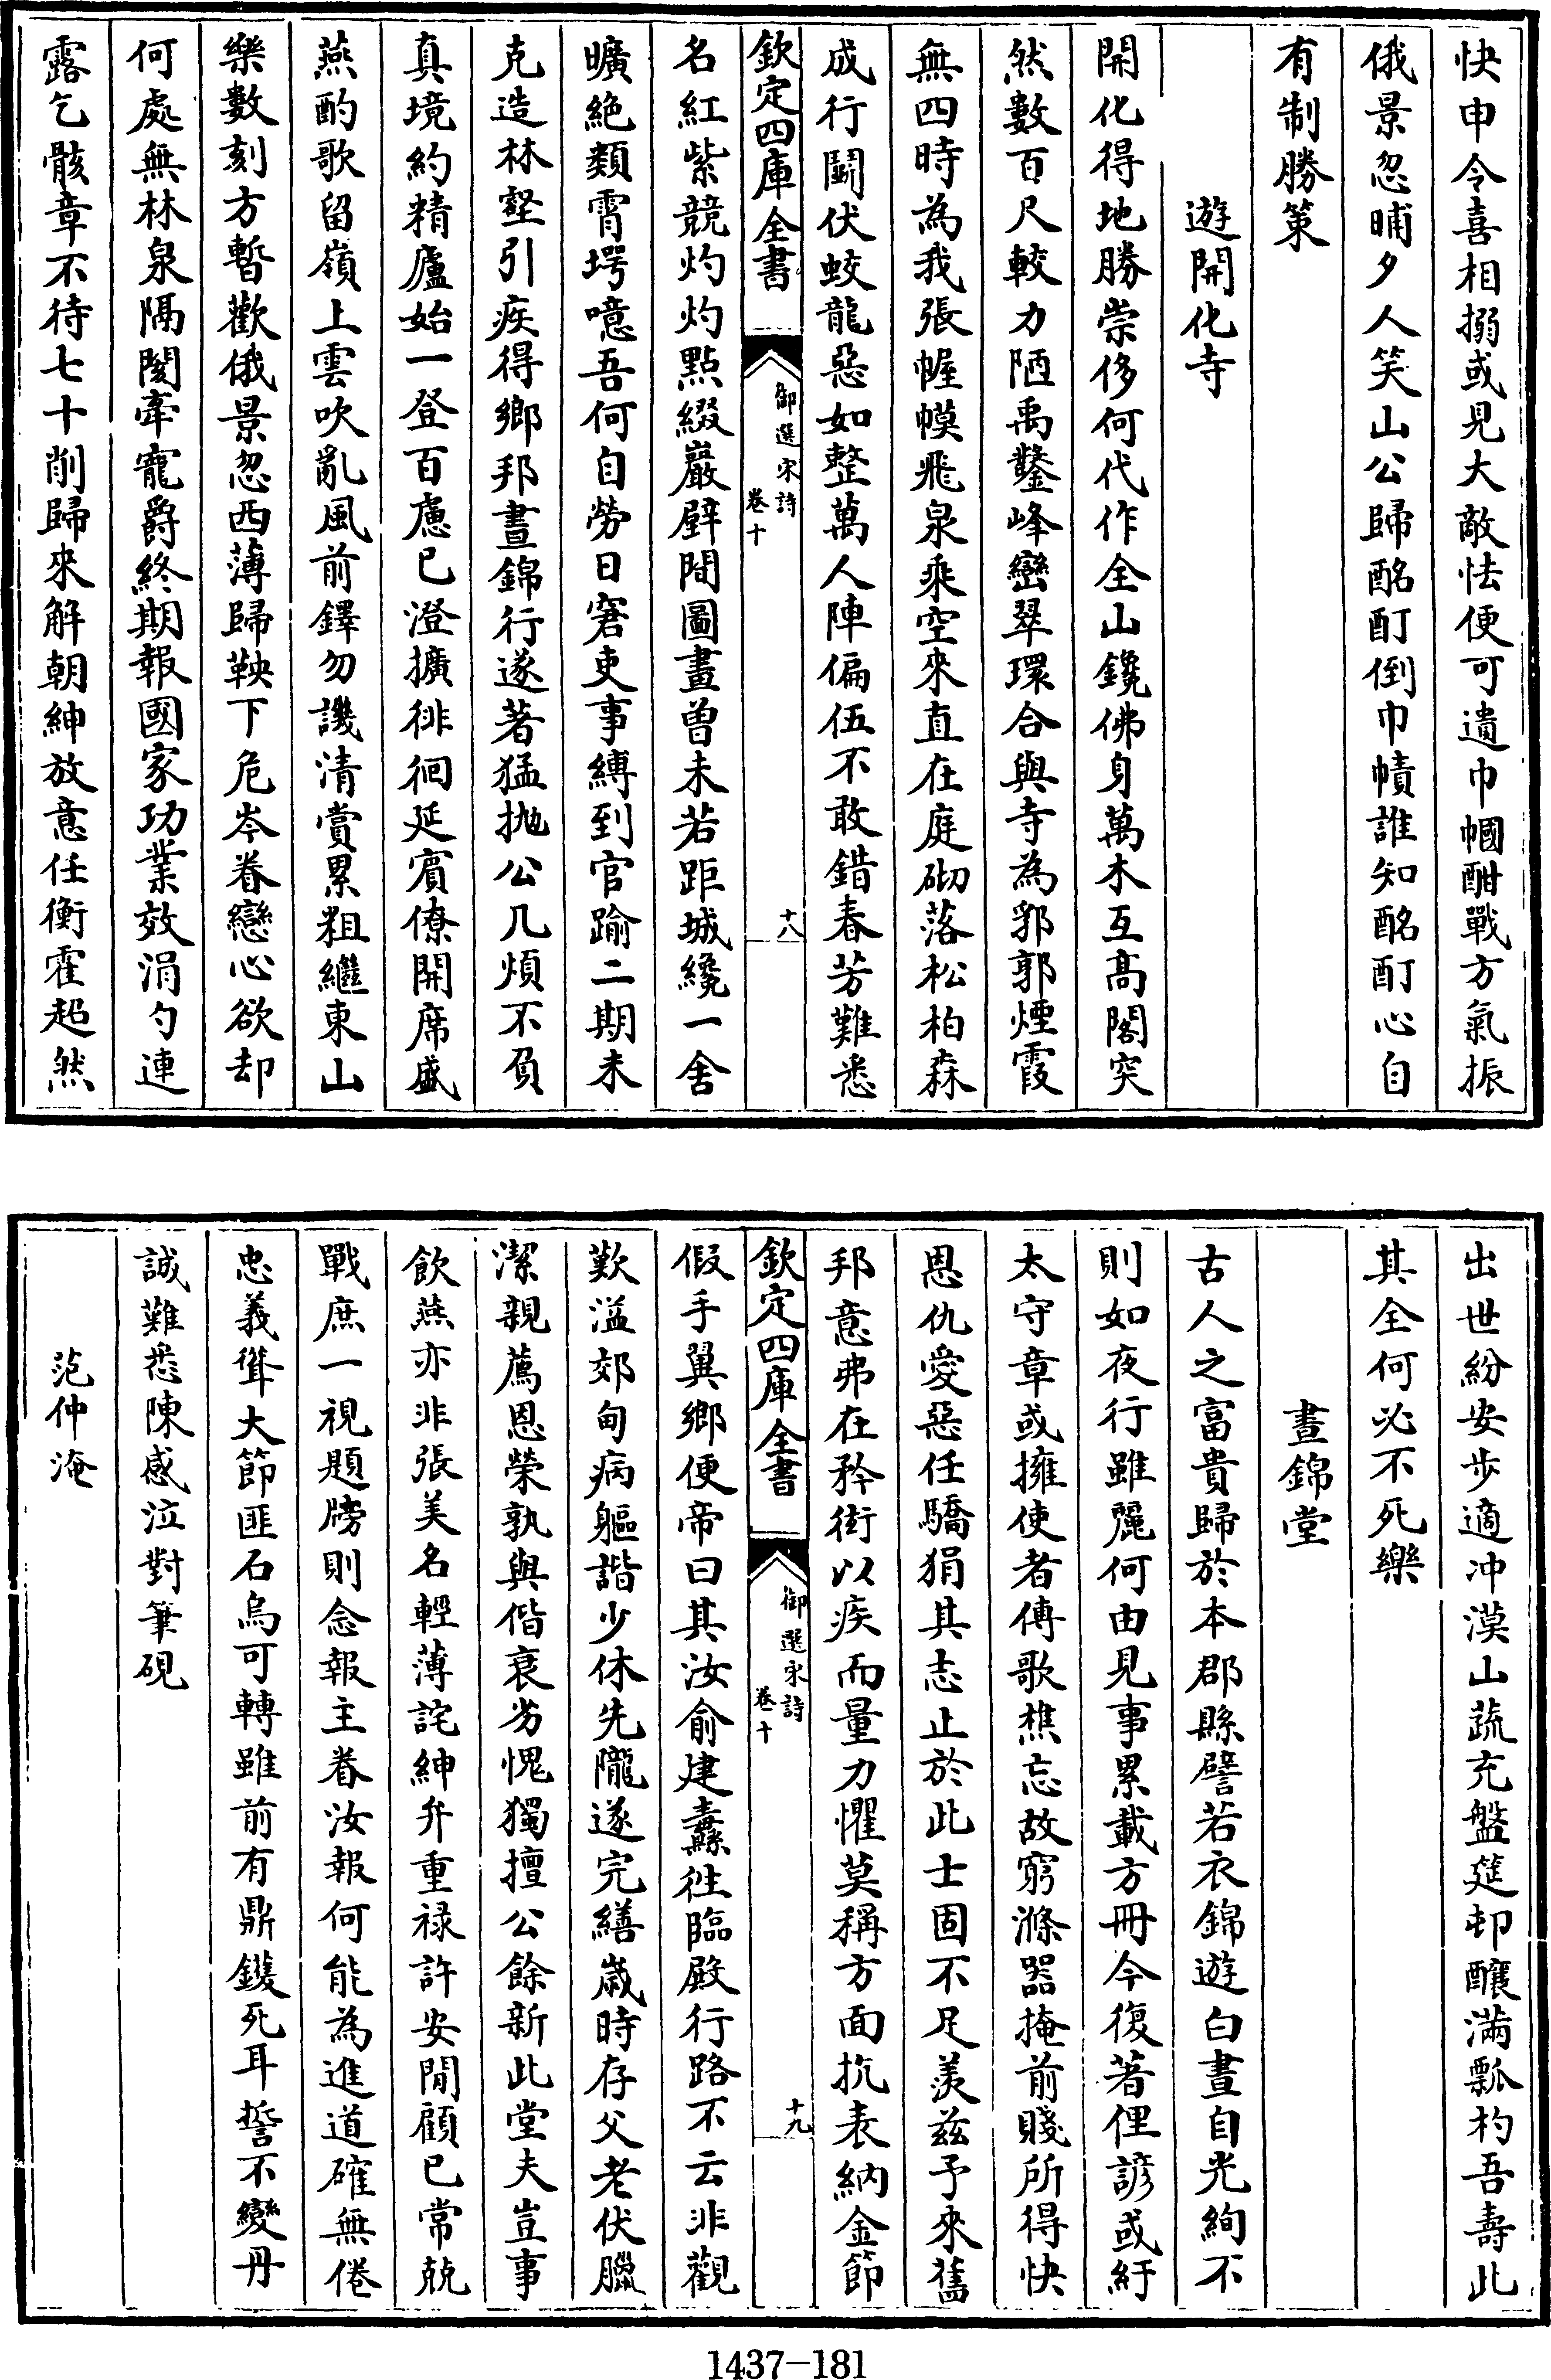 快申令喜相搦或見大敵怯便可遺巾幗酣戰方氣振
俄景忽晡夕人笑山公歸酩酊倒巾幘誰知酩酊心自
有制勝策
遊開化寺
開化得地勝崇侈何代作全山鑱佛身萬木互髙閣突
然數百尺較力陋禹鑿峰巒翠環合與寺為郛郭煙霞
無四時為我張幄幙飛泉乘空來直在庭砌落松柏森
成行鬭伏蛟龍惡如整萬人陣偏伍不敢錯春芳難悉
欽定四庫全書
御選宋詩
卷十
十八
名紅紫競灼灼點綴巖壁間圖畫曾未若距城纔一舍
曠絶類霄堮噫吾何自勞日窘吏事縛到官踰二期未
克造林壑引疾得鄉邦晝錦行遂著猛抛公几煩不負
真境約精廬始一登百慮已澄擴徘徊延賓僚開席盛
燕酌歌留嶺上雲吹亂風前鐸勿譏清賞累粗繼東山
樂數刻方暫歡俄景忽西薄歸鞅下危岑眷戀心欲却
何處無林泉隔閡牽寵爵終期報國家功業效涓勺連
露乞骸章不待七十削歸來解朝紳放意任衡霍超然
出世紛安步適冲漠山蔬充盤筵邨釀滿瓢杓吾壽此
其全何必不死樂
晝錦堂
古人之富貴歸於本郡縣譬若衣錦遊白晝自光絢不
則如夜行雖麗何由見事累載方冊今復著俚諺或紆
太守章或擁使者傳歌樵忘故窮滌器掩前賤所得快
恩仇愛惡任驕狷其志止於此士固不足羡兹予來舊
邦意弗在矜衒以疾而量力懼莫稱方面抗表納金節
欽定四庫全書
御選宋詩
卷十
十九
假手翼鄉便帝曰其汝俞建纛徃臨殿行路不云非觀
歎溢郊甸病軀諧少休先隴遂完繕嵗時存父老伏臘
潔親薦恩榮孰與偕衰劣愧獨擅公餘新此堂夫豈事
飲燕亦非張美名輕薄詫紳弁重禄許安閒顧已常兢
戰庶一視題牓則念報主眷汝報何能為進道確無倦
忠義聳大節匪石烏可轉雖前有鼎鑊死耳誓不變丹
誠難悉陳感泣對筆硯
范仲淹
1437-181